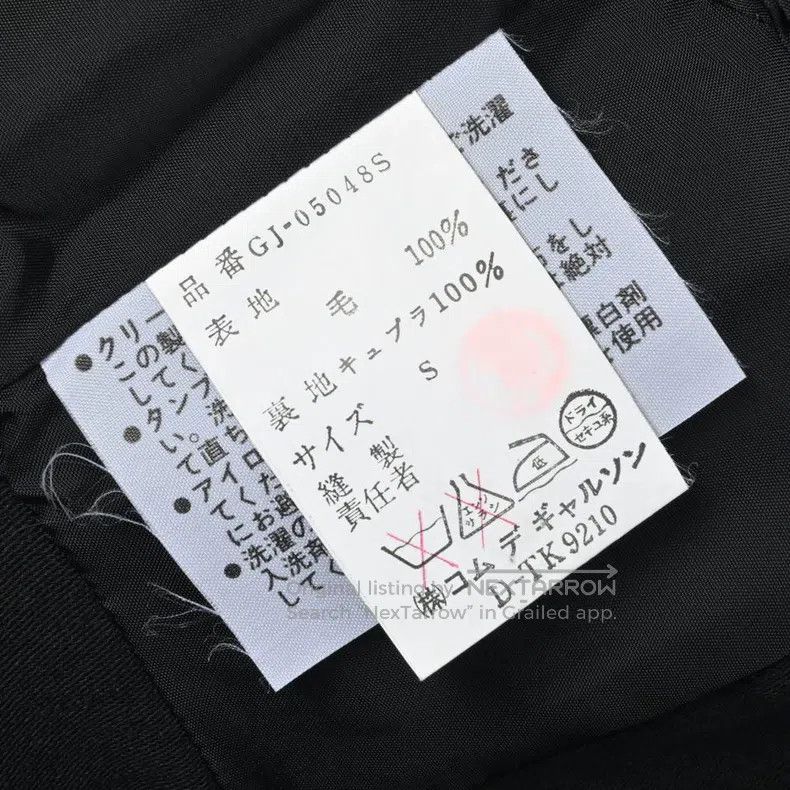 品番GJ-05048S
表地 毛 100%
裏地キュプラ100%
サイズ S
縫製
責任者
低
ドライ
セキユ系
エンソ
サラシ
㈱コム デ ギャルソン
D.TK9210
ご洗濯
ださ
にし
をし
絶対
漂白剤
使用
クリー
の製
こてく
し
タンブ
い。洗ち
て直
アイロ
てくだ
にお避
洗濯の
入洗剤
してく
Original listing by NEXTARROW
Search "NexTarrow" in Grailed app.